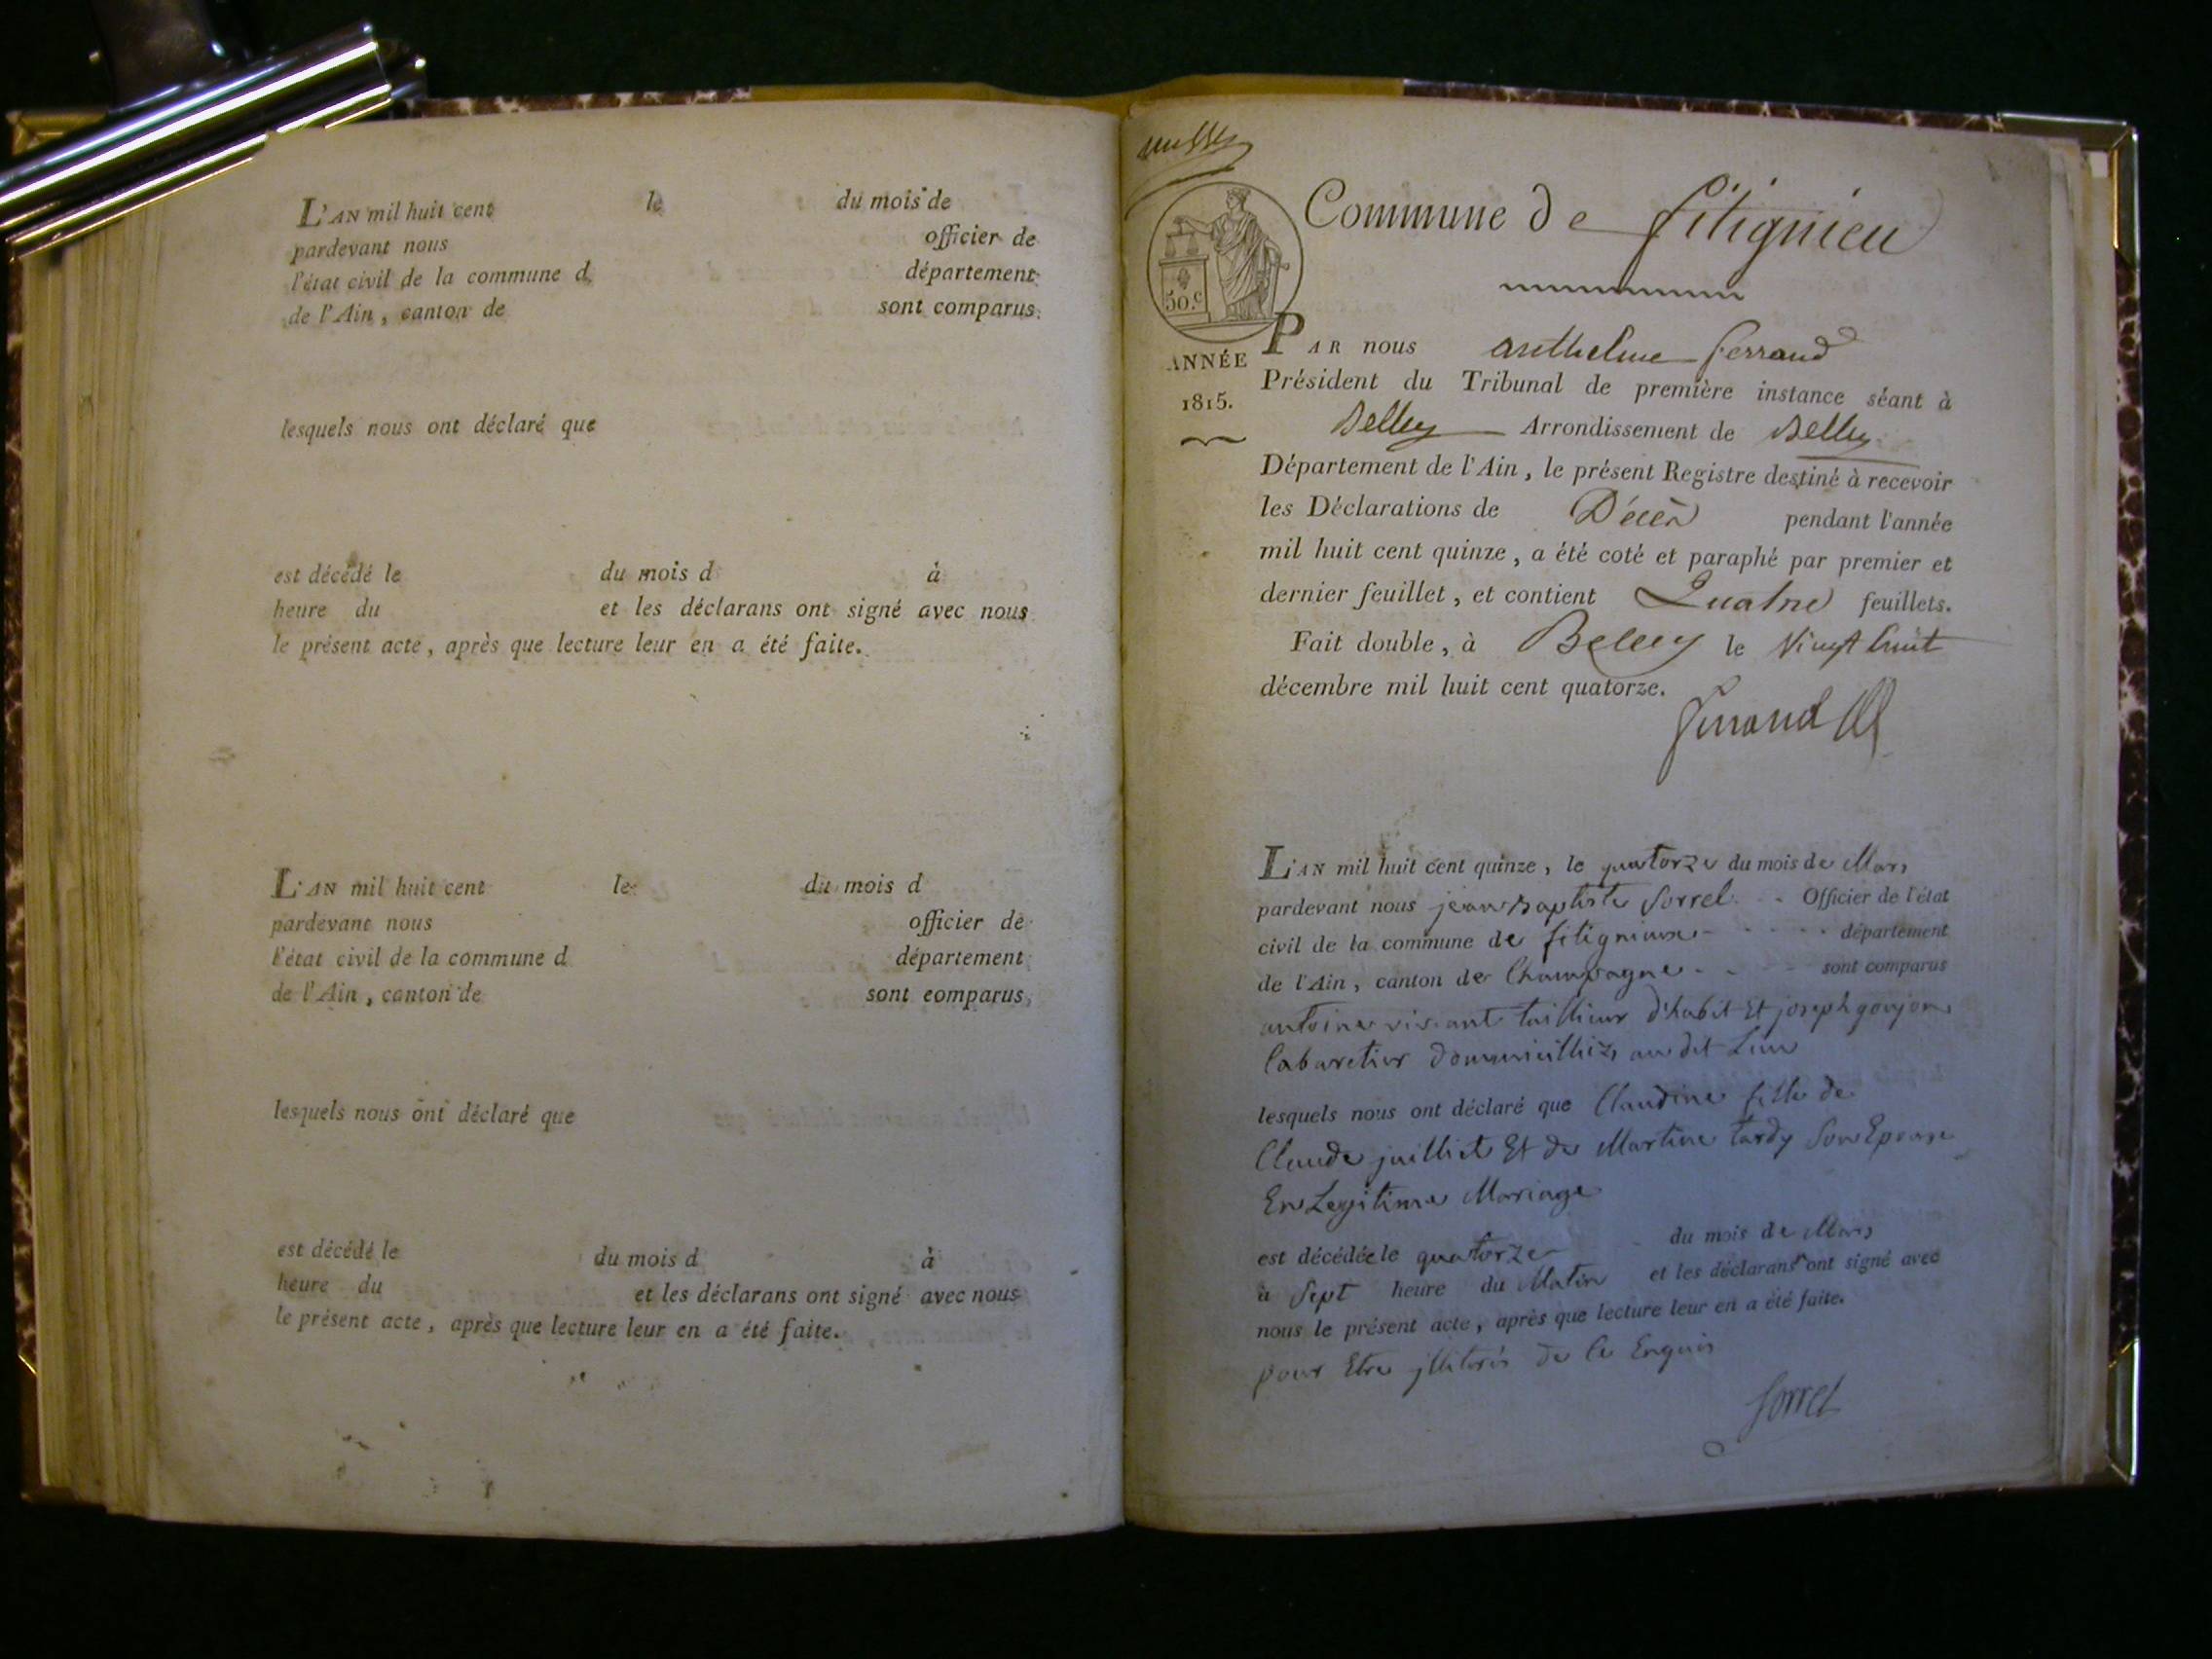 L'AN mil huit cent le du mois de
pardevant nous officier de
l'état civil de la commune d département
de l'Ain, canton de sont comparus
lesquels nous ont déclaré que
est décédé le du mois d à
heure du et les déclarans ont signé avec nous
le présent acte, après que lecture leur en a été faite.
L'AN mil huit cent le du mois d
pardevant nous officier de
l'état civil de la commune d département
de l'Ain, canton de sont comparus,
lesquels nous ont déclaré que
est décédé le du mois d à
heure du et les déclarans ont signé avec nous
le présent acte, après que lecture leur en a été faite.
Commune de fitignieu
50.c
ANNÉE
1815.
PAR nous anthelme ferrand
Président du Tribunal de première instance séant à
Belley Arrondissement de Belley
Département de l'Ain, le présent Registre destiné à recevoir
les Déclarations de Décès pendant l'année
mil huit cent quinze, a été coté et paraphé par premier et
dernier feuillet, et contient Quatre feuillets.
Fait double, à Belley le Vingt huit
décembre mil huit cent quatorze.
ferrand
L'AN mil huit cent quinze, le quatorze du mois de Mars
pardevant nous jean Baptiste Sorrel Officier de l'état
civil de la commune de fitignieux département
de l'Ain, canton de Champagne sont comparus
antoine tailleur d'habit Et joseph goujon
Cabaretier au dit Lieu
lesquels nous ont déclaré que Claudine fille de
Claude juilliet Et de Martine tardy Son Epouse
En Legitime Mariage
est décédée le quatorze du mois de Mars
à Sept heure du Matin et les déclarans ont signé avec
nous le présent acte, après que lecture leur en a été faite.
pour Etre de Ce Enquis
Sorrel